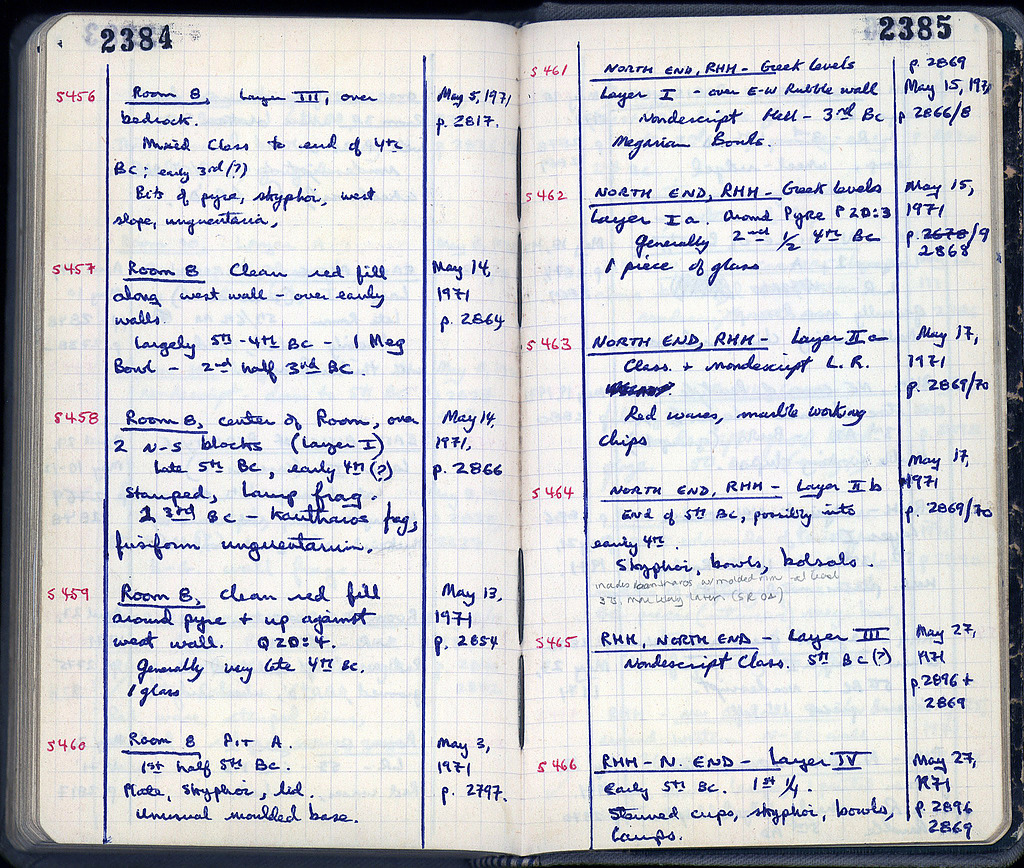 2384
S456
Room 8, Layer III, over
bedrock.
May 5, 1971
p. 2817.
Mixed Class to end of 4th
BC; early 3rd (?)
Bits of pyre, skyphoi, west
slope, unguentaria,
S457
Room 8 Clean red fill
along west wall - over early
walls.
May 14,
1971
p. 2864
largely 5th - 4th BC - 1 Meg
Bowl - 2nd half 3rd BC.
S458
Room 8, center of Room, over
2 N-S blocks (Layer I)
May 14,
1971,
p. 2866
Late 5th BC, early 4th (?)
stamped, lamp frag.
2 3rd BC - kantharos frag,
fusiform unguentarium.
S459
Room 8, Clean red fill
around pyre + up against
west wall. Q20:4.
May 13,
1971
p. 2854
Generally very late 4th BC.
1 glass
S460
Room 8 Pit A.
May 3,
1971
p. 2797.
1st half 5th BC.
Plate, skyphoi, lid.
Unusual moulded base.
2385
S461
NORTH END, RHH - Greek levels
Layer I - over E-W Rubble wall
p. 2869
May 15, 1971
p 2866/8
Nondescript Hell - 3rd BC
Megarian Bowls.
S462
NORTH END, RHH - Greek levels
Layer Ia Around Pyre P20:3
May 15,
1971
p. 2678/9
2868
Generally 2nd 1/2 4th BC
1 piece of glass
S463
NORTH END, RHH - Layer IIa
May 17,
1971
p. 2869/70
Class. + nondescript L.R.
Red wares, marble working
chips
S464
NORTH END, RHH - Layer IIb
May 17,
1971
p. 2869/70
End of 5th BC, possibly into
early 4th.
Skyphoi, bowls, bolsals.
includes kantharos w/ molded rim - at least
3Q, may be later. (SR 02)
S465
RHH, NORTH END - Layer III
May 27,
1971
p. 2896 +
2869
Nondescript Class. 5th BC (?)
S466
RHH - N. END - Layer IV
May 27,
1971
p. 2896
2869
Early 5th BC. 1st 1/4.
Stemmed cups, skyphoi, bowls,
lamps.